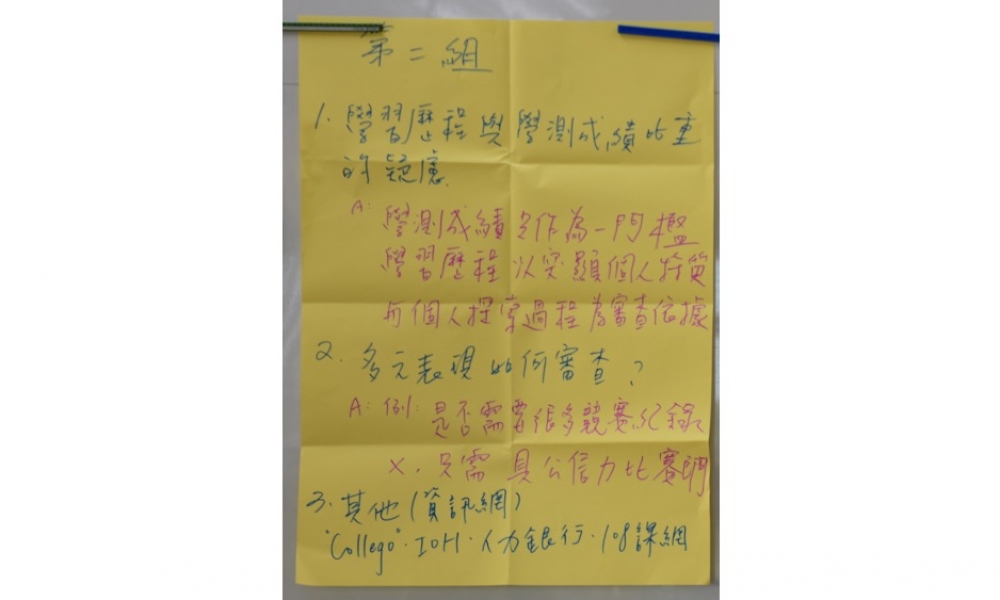 第二組
1. 學習歷程與學測成績比重
的疑慮.
A: 學測成績只作為一門檻
學習歷程以突顯個人特質
與個人探索過程為審查依據
2. 多元表現如何審查?
A: 例: 是否需要很多競賽紀錄
X. 只需具公信力比賽
3. 其他(資訊網)
"Collego"·IOH·人力銀行·108課網